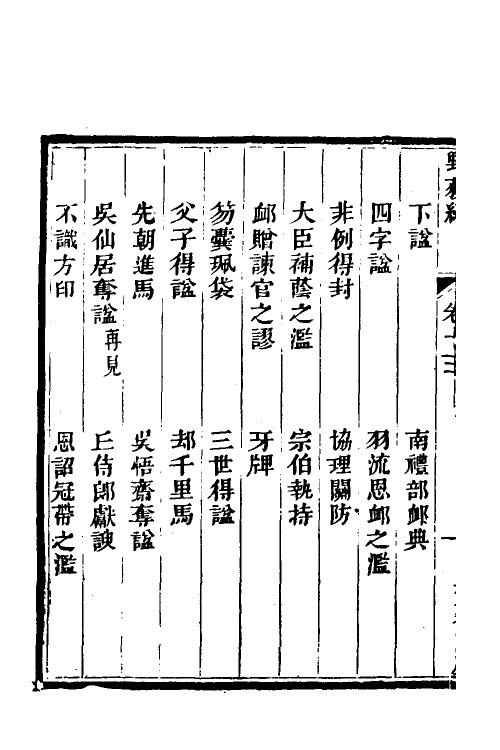 下諡　南禮部䘏典
四字諡　羽流恩䘏之濫
非例得封　協理關防
大臣補蔭之濫　宗伯執持
䘏贈諫官之謬　牙牌
笏囊珮袋　三世得諡
父子得諡　却千里馬
先朝進馬　吳悟齋奪諡
吳仙居奪諡再見　丘侍郎獻諛
不識方印　恩詔冠帶之濫